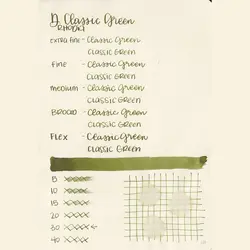 D. Classic Green
RHODIA
EXTRA FINE - Classic Green
CLASSIC GREEN
FINE - Classic Green
CLASSIC GREEN
MEDIUM - Classic Green
CLASSIC GREEN
BROAD - Classic Green
CLASSIC GREEN
FLEX - Classic Green
CLASSIC GREEN
5 xxxxx
10 xxxxx
15 xxxxx
20 xxxxx
30 xxxxx
40 xxxxx